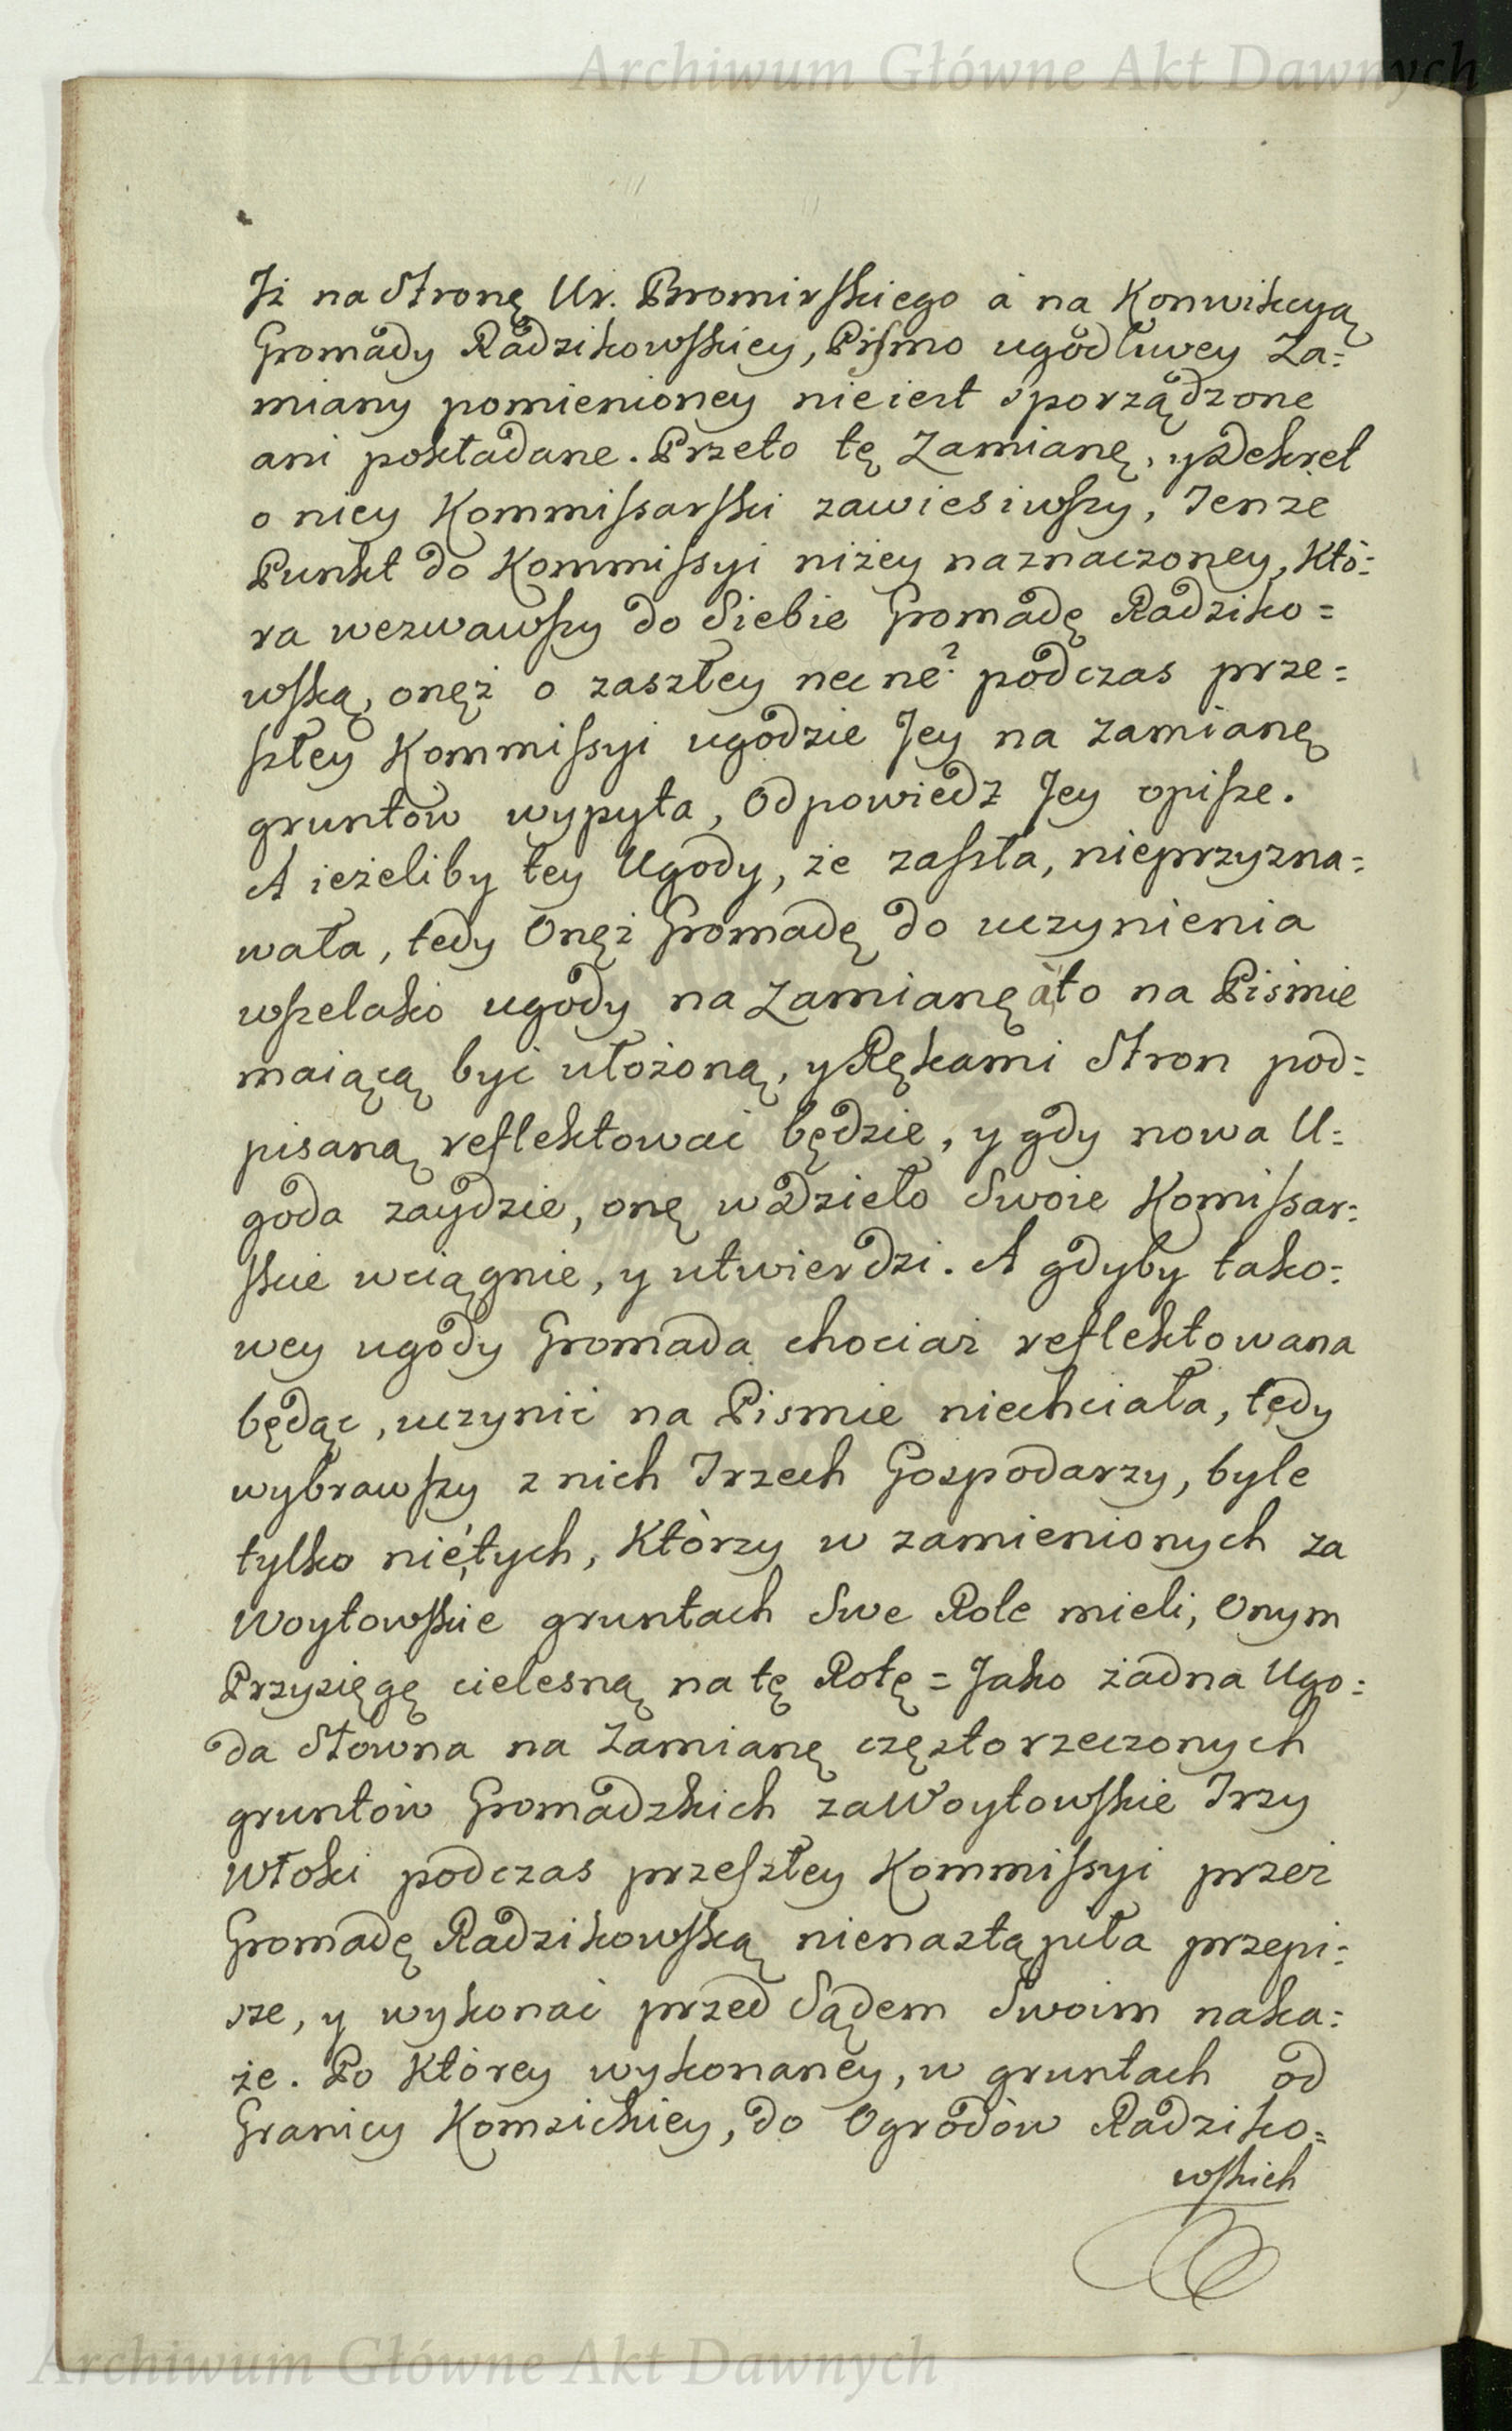 Archiwum Główne Akt Dawnych
Iż na Stronę Ur. Bromirskiego à na Konwikcyą
Gromady Radzikowskiey, Pismo ugodliwey Za=
miany pomienioney nieiest sporządzone
ani pokładane. Przeto tę Zamianę, y Dekret
o niey Kommissarski zawiesiwszy, Tenże
Punkt do Kommissyi niżey naznaczoney, któ=
ra wezwawszy do Siebie Gromadę Radziko=
wską, onęż o zaszłey nec ne? podczas prze=
szłey Kommissyi ugodzie Jey na zamianę
gruntów wypyta, Odpowiedz Jey opisze.
A ieżeliby tey Ugody, że zaszła, nieprzyzna=
wała, tedy Onęż Gromadę do uczynienia
wszelako ugody na Zamianę à to na Piśmie
maiącą być ułożoną, y Rękami Stron pod=
pisaną reflektować będzie, y gdy nowa U=
goda zaydzie, onę w Dzieło Swoie Komissar=
skie wciągnie, y utwierdzi. A gdyby tako=
wey ugody Gromada chociaż reflektowana
będąc, uczynić na Pismie niechciała, tedy
wybrawszy z nich Trzech Gospodarzy, byle
tylko nie, tych, którzy w zamienionych za
Woytowskie gruntach Swe Role mieli, Onym
Przysięgę cielesną na tę Rotę = Jako żadna Ugo=
da Słowna na Zamianę często rzeczonych
gruntów Gromadzkich za Woytowskie Trzy
Włoki podczas przeszłey Kommissyi przez
Gromadę Radzikowską nienastąpiła przepi=
sze, y wykonać przed Sądem Swoim naka=
że. Po którey wykonaney, w gruntach od
Granicy Komsickiey, do Ogrodów Radziko=
wskich
Archiwum Główne Akt Dawnych